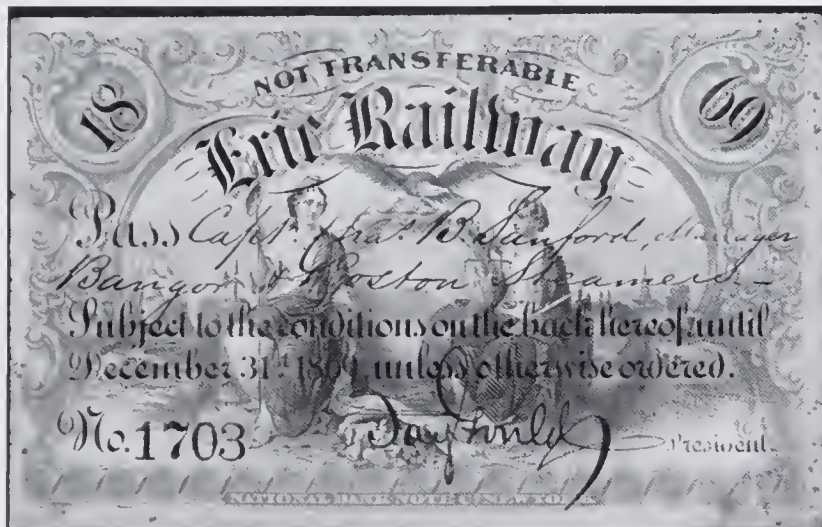 18 NOT TRANSFERABLE 69
Erie Railway
Pass Capt. Chas. B. Sanford, Manager
Bangor & Boston Steamers –
Subject to the conditions on the back hereof until
December 31st 1869 unless otherwise ordered.
No. 1703 Jay Gould President.
NATIONAL BANK NOTE CO. NEW YORK